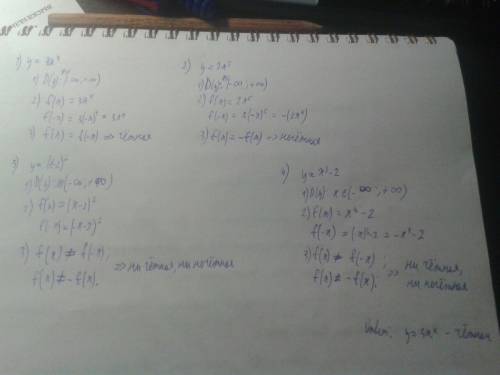 1) y = 3x⁴
1) D(y): x∈(-∞, +∞)
2) f(x) = 3x⁴
f(-x) = 3(-x)⁴ = 3x⁴
3) f(x) = f(-x) => чётная
2) y = 2x⁵
1) D(y): x∈(-∞, +∞)
2) f(x) = 2x⁵
f(-x) = 2(-x)⁵ = -(2x⁵)
3) f(x) = -f(x) => нечётная
3)
1) D(y): x∈(-∞, +∞)
2) f(x) = (x-2)²
f(-x) = (-x-2)²
3) f(x) ≠ f(-x);
f(x) ≠ -f(x). => ни чётная, ни нечётная
4)
1) D(y): x∈(-∞, +∞)
2) f(x) =
f(-x) =
3) f(x) ≠ f(-x);
f(x) ≠ -f(x). => ни чётная,
ни нечётная
Ответ: y = 3x⁴ - чётная